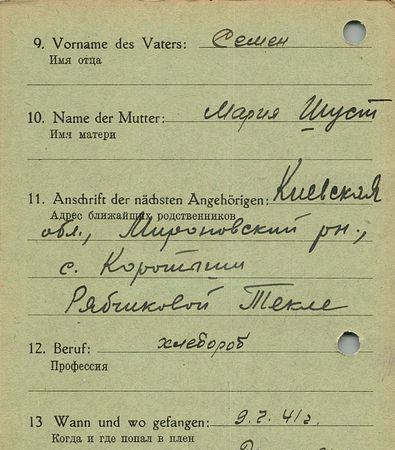 9. Vorname des Vaters: Семен
Имя отца
10. Name der Mutter: Мария Шуст
Имя матери
11. Anschrift der nächsten Angehörigen: Киевская
Адрес ближайших родственников
обл., Мироновский рн.,
с. Коротыши
Рябчиковой Текле
12. Beruf: хлебороб
Профессия
13 Wann und wo gefangen: 9.7.41г.
Когда и где попал в плен